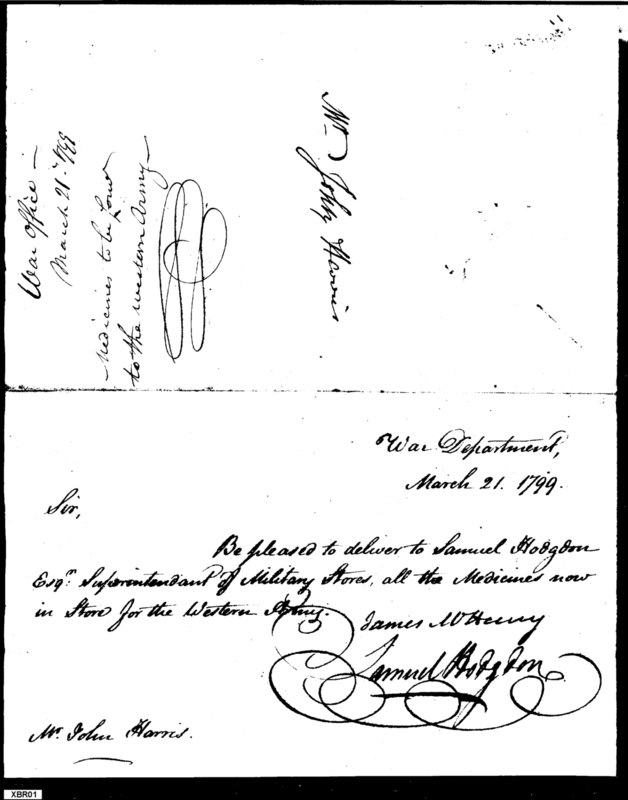 War Office —
March 21. 1799
Medicines to be
to the Western Army —
Mr John Harris
War Department,
March 21. 1799.
Sir,
Be pleased to deliver to Samuel Hodgdon
Esqr. Superintendant of Military Stores, all the Medicines now
in Store for the Western Army.
James McHenry
Samuel Hodgdon
Mr. John Harris.
XBR01